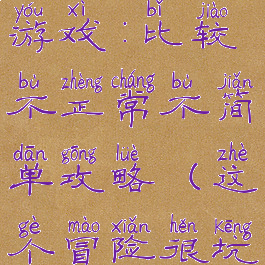 yóu xì bǐ jiào
游戏:比较
bù zhèng cháng bù jiǎn
不正常不简
dān gōng lüè zhè
单攻略(这
gè mào xiǎn hěn kēng
个冒险很坑